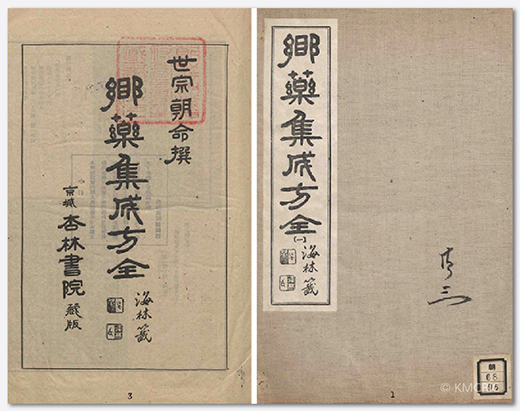 世宗朝命撰
鄕藥集成方全
海林籤
京城杏林書院藏版
3
鄕藥集成方全
(一)
海林籤
朝
68
1